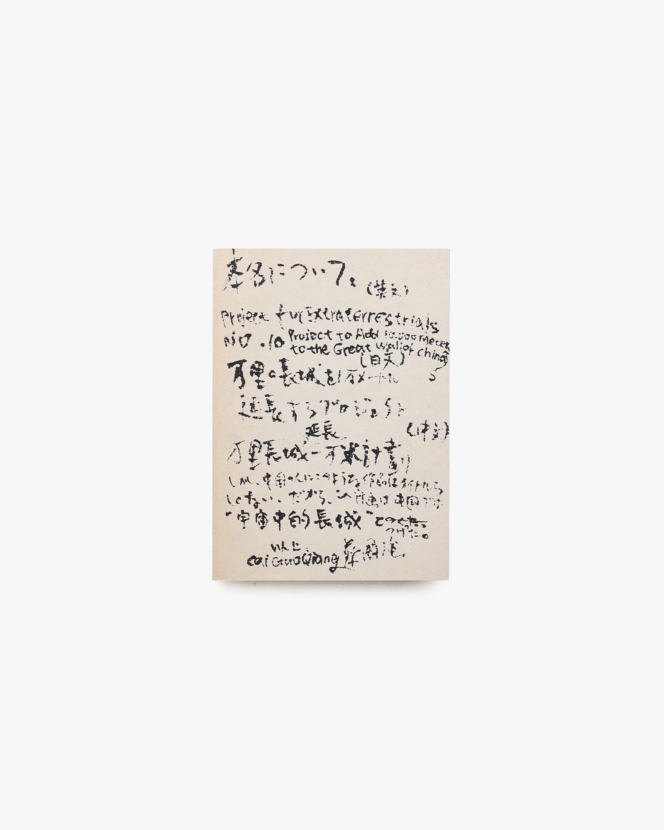 について。
(英文)
Project for Extraterrestrials
No.10 Project to Add 10,000 meters
to the Great Wall of China
(日文)
万里の長城を1万メートル
延長するプロジェクト
(中文)
延長
万里長城一万米計劃
しかし、中国
しない。だから、は中国では
"宇宙中的長城"と
つけた。
以上
Cai Guo Qiang 蔡國強